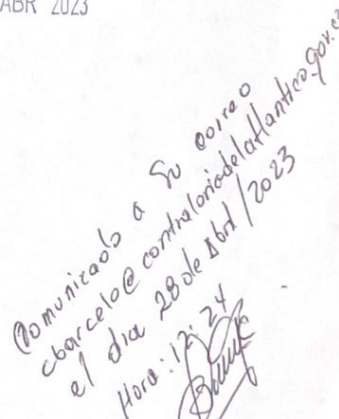 ABR 2023
Comunicado a Su correo
cbarcelo@contraloriadelatlantico.gov.co
el dia 28 de Abril/2023
Hora: 12:24